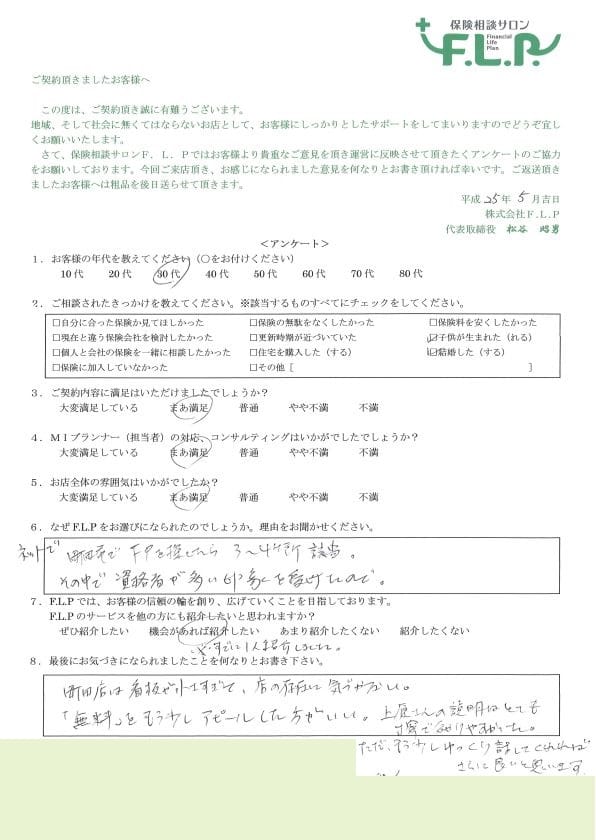 保険相談サロン
Financial
Life
Plan
F.L.P.
ご契約頂きましたお客様へ
この度は、ご契約頂き誠に有難うございます。
地域、そして社会に無くてはならないお店として、お客様にしっかりとしたサポートをしてまいりますのでどうぞ宜し
くお願いいたします。
さて、保険相談サロンＦ．Ｌ．Ｐではお客様より貴重なご意見を頂き運営に反映させて頂きたくアンケートのご協力
をお願いしております。今回ご来店頂き、お感じになられました意見を何なりとお書き頂ければ幸いです。ご返送頂き
ましたお客様へは粗品を後日送らせて頂きます。
平成 25年 5月吉日
株式会社Ｆ.Ｌ.Ｐ
代表取締役 松谷 昭男
＜アンケート＞
１．お客様の年代を教えてください（○をお付けください）
10代 20代 30代 40代 50代 60代 70代 80代
２．ご相談されたきっかけを教えてください。※該当するものすべてにチェックをしてください。
□自分に合った保険か見てほしかった □保険の無駄をなくしたかった □保険料を安くしたかった
□現在と違う保険会社を検討したかった □更新時期が近づいていた ☑子供が生まれた（れる）
□個人と会社の保険を一緒に相談したかった □住宅を購入した（する） ☑結婚した（する）
□保険に加入していなかった □その他［ ］
３．ご契約内容に満足はいただけましたでしょうか？
大変満足している まあ満足 普通 やや不満 不満
４．ＭＩプランナー（担当者）の対応、コンサルティングはいかがでしたでしょうか？
大変満足している まあ満足 普通 やや不満 不満
５．お店全体の雰囲気はいかがでしたか？
大変満足している まあ満足 普通 やや不満 不満
６．なぜF.L.Pをお選びになられたのでしょうか。理由をお聞かせください。
ネットで 町田でFPを探したら 3〜4ヶ所 該当。
その中で 資格者が多い印象を受けたので。
７．F.L.Pでは、お客様の信頼の輪を創り、広げていくことを目指しております。
F.L.Pのサービスを他の方にも紹介したいと思われますか？
ぜひ紹介したい 機会があれば紹介したい あまり紹介したくない 紹介したくない
すでに1人紹介しました。
８．最後にお気づきになられましたことを何なりとお書き下さい。
町田店は看板が小さすぎて、店の存在に気づかない。
「無料」をもう少しアピールした方がいい。土屋さんの説明はとても
丁寧で分かりやすかった。
ただ、もう少しゆっくり話してくれれば
さらに良いと思います